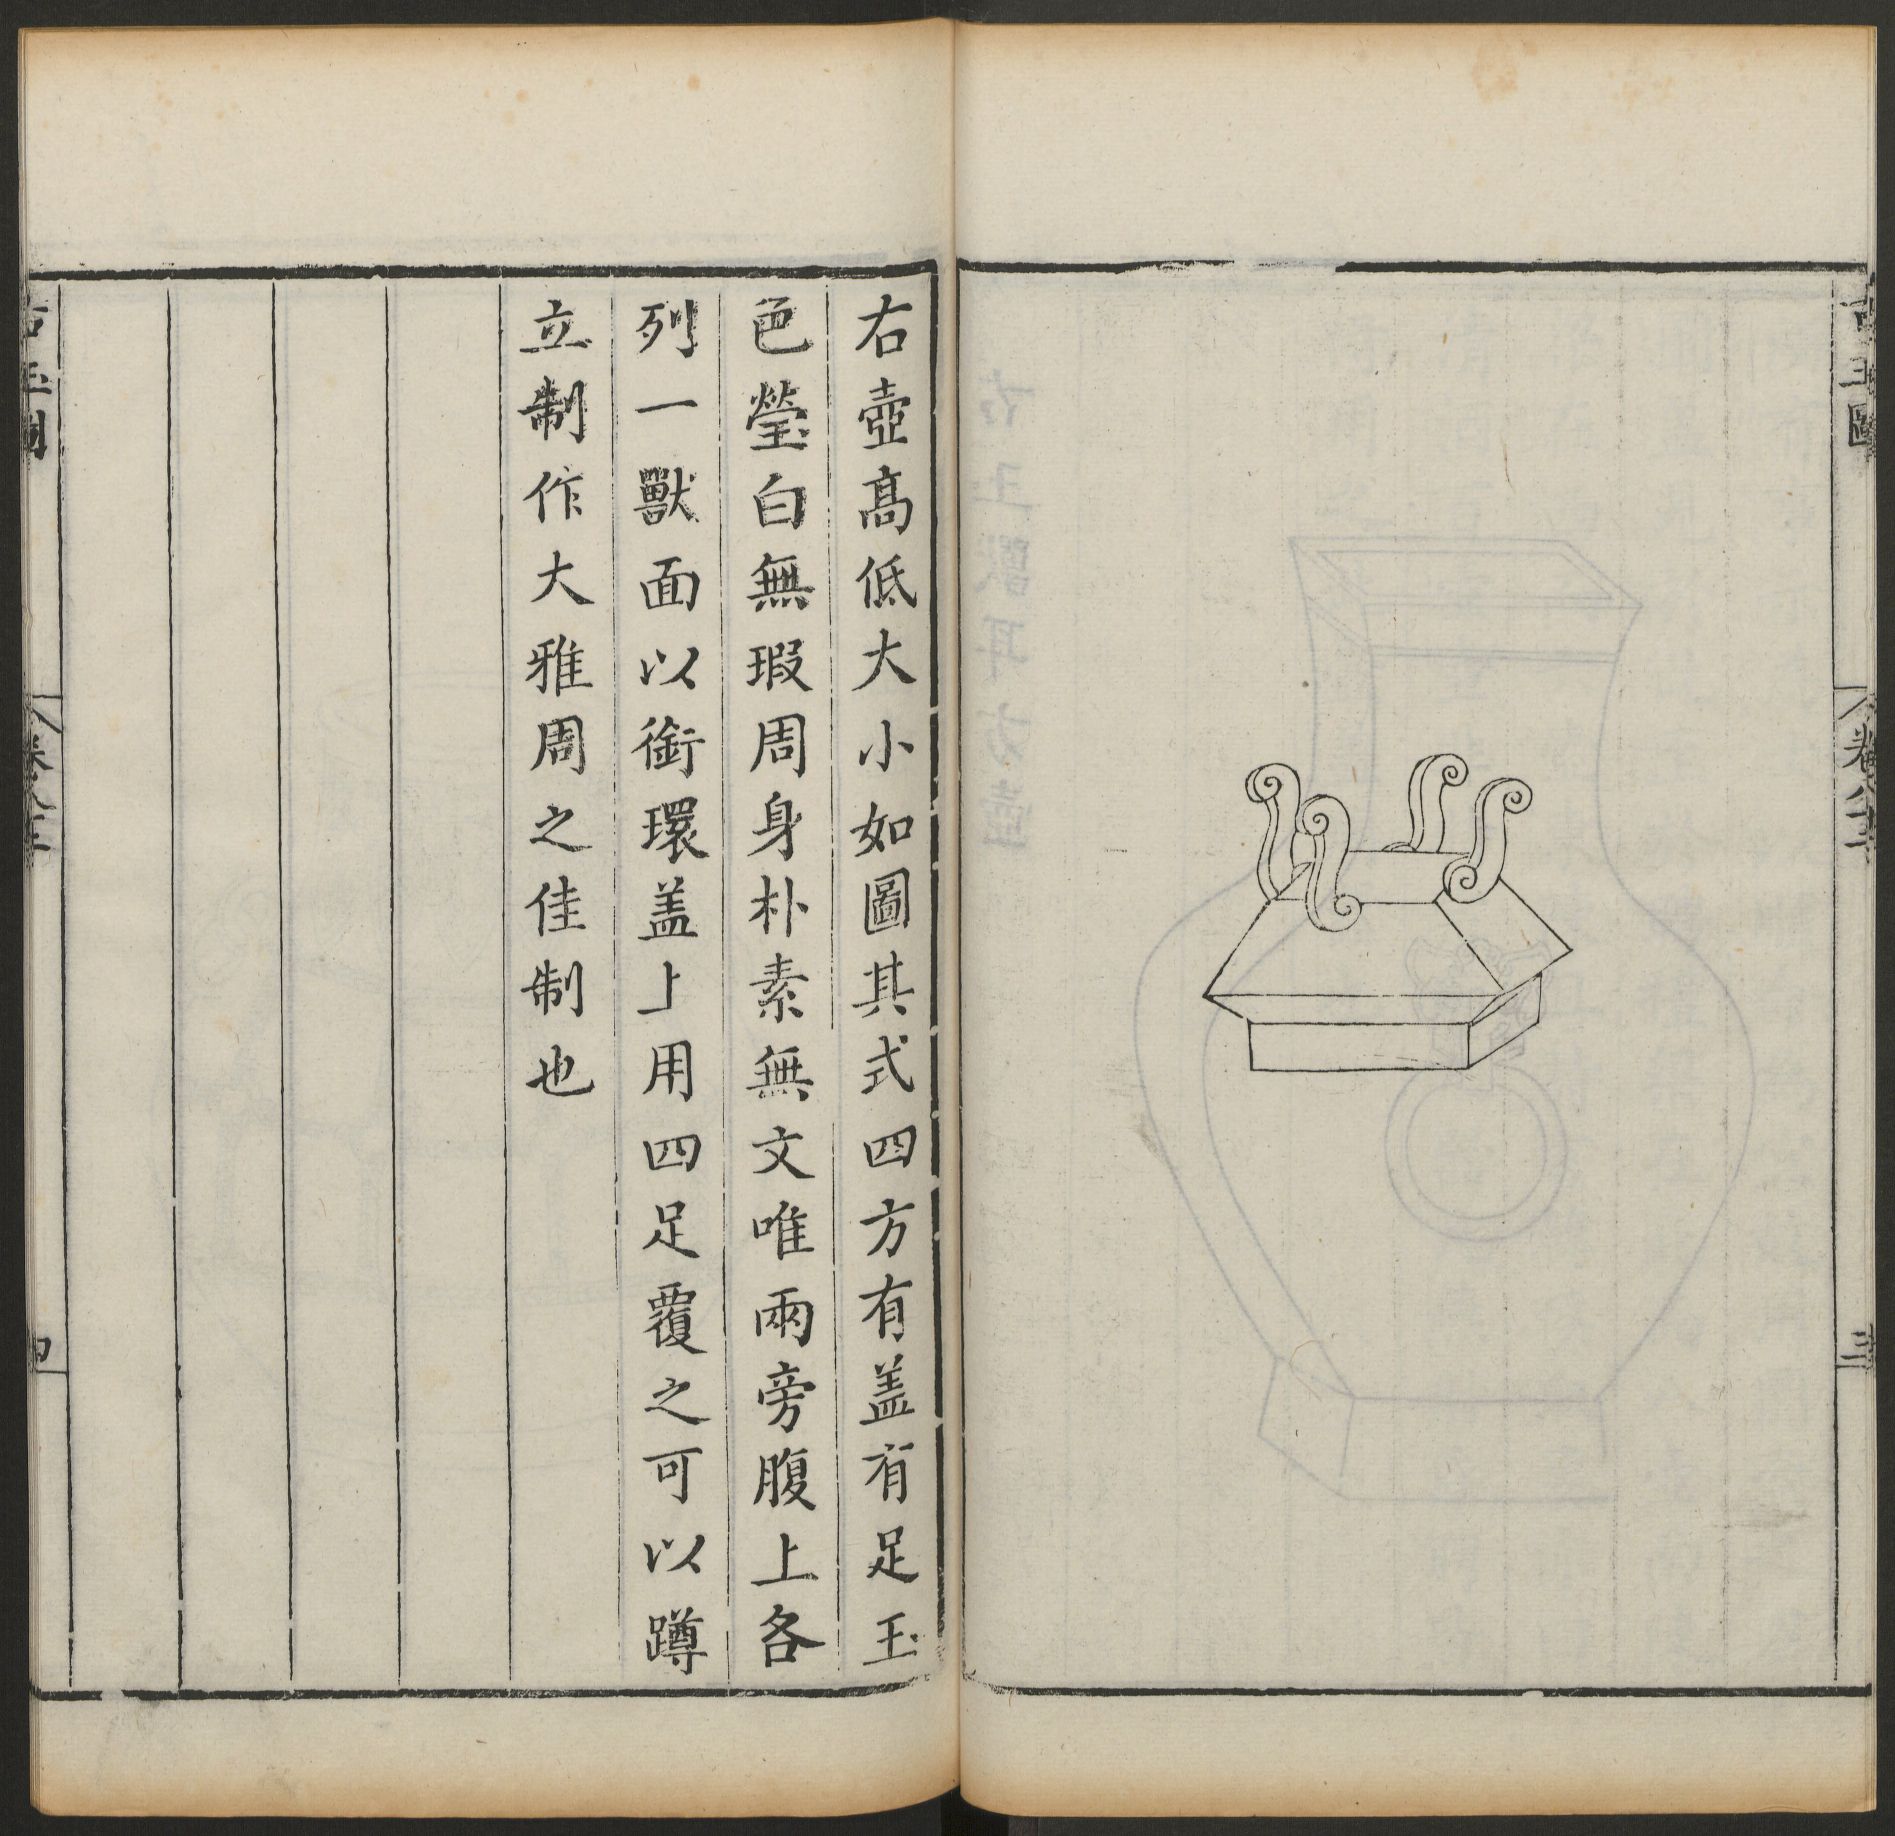 古玉圖
三
右壺髙低大小如圖其式四方有盖有足玉
色瑩白無瑕周身朴素無文唯兩旁腹上各
列一獸面以銜環盖上用四足覆之可以蹲
立制作大雅周之佳制也
古玉圖